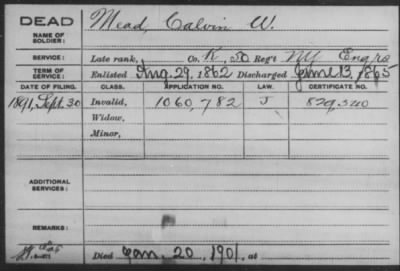 DEAD Mead, Calvin W.
NAME OF SOLDIER:
SERVICE: Late rank, Co. K, 50 Reg't NY Engrs
TERM OF SERVICE: Enlisted Aug. 29, 1862 Discharged June 13, 1865
DATE OF FILING. CLASS. APPLICATION NO. LAW. CERTIFICATE NO.
1891, Sept. 30 Invalid, 1060,782 J 829,340
Widow,
Minor,
ADDITIONAL SERVICES:
REMARKS:
Died Jan. 20, 1901, at